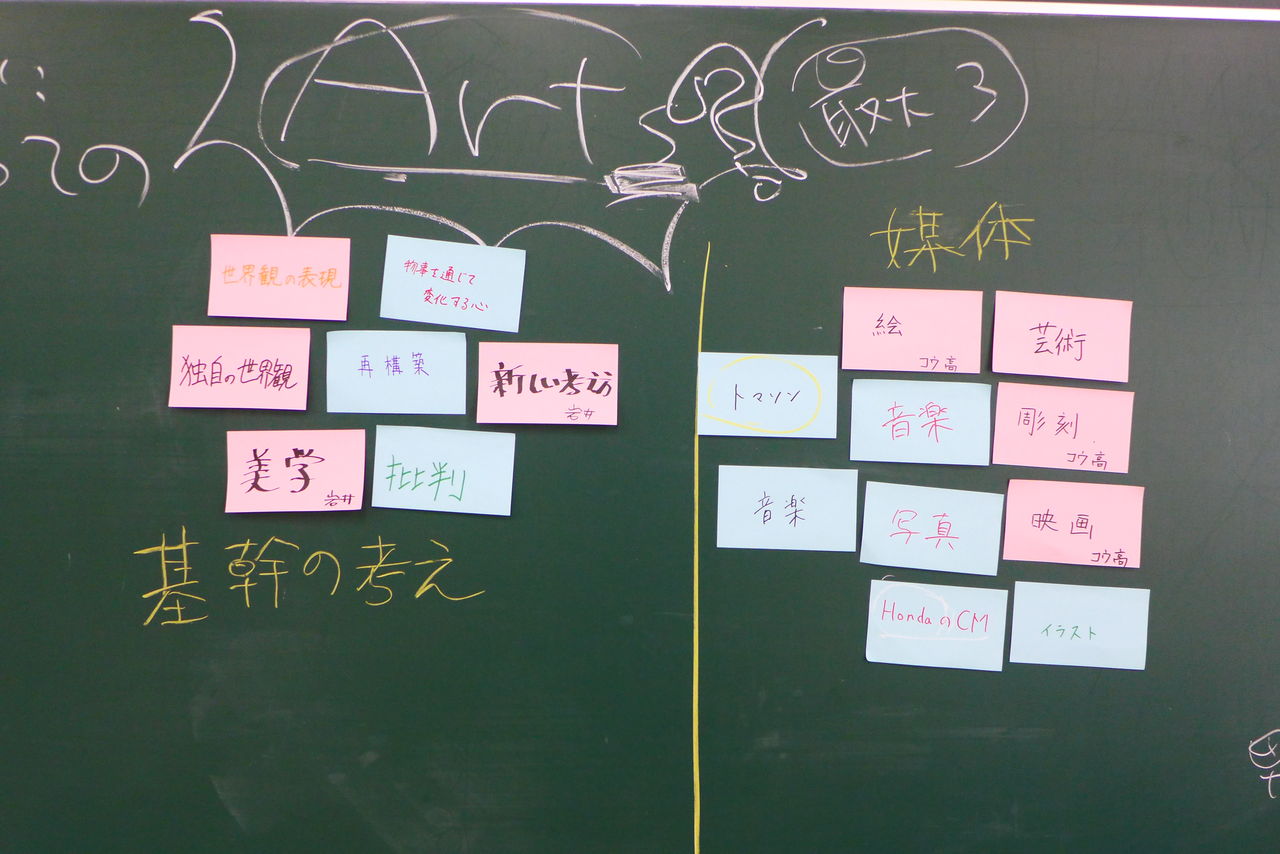 Art
最大3
世界観の表現
物事を通じて
変化する心
独自の世界観
再構築
新しい考え方
岩井
美学
岩井
批判
基幹の考え
媒体
絵
コウ高
芸術
トマソン
音楽
彫刻
コウ高
音楽
写真
映画
コウ高
HondaのCM
イラスト